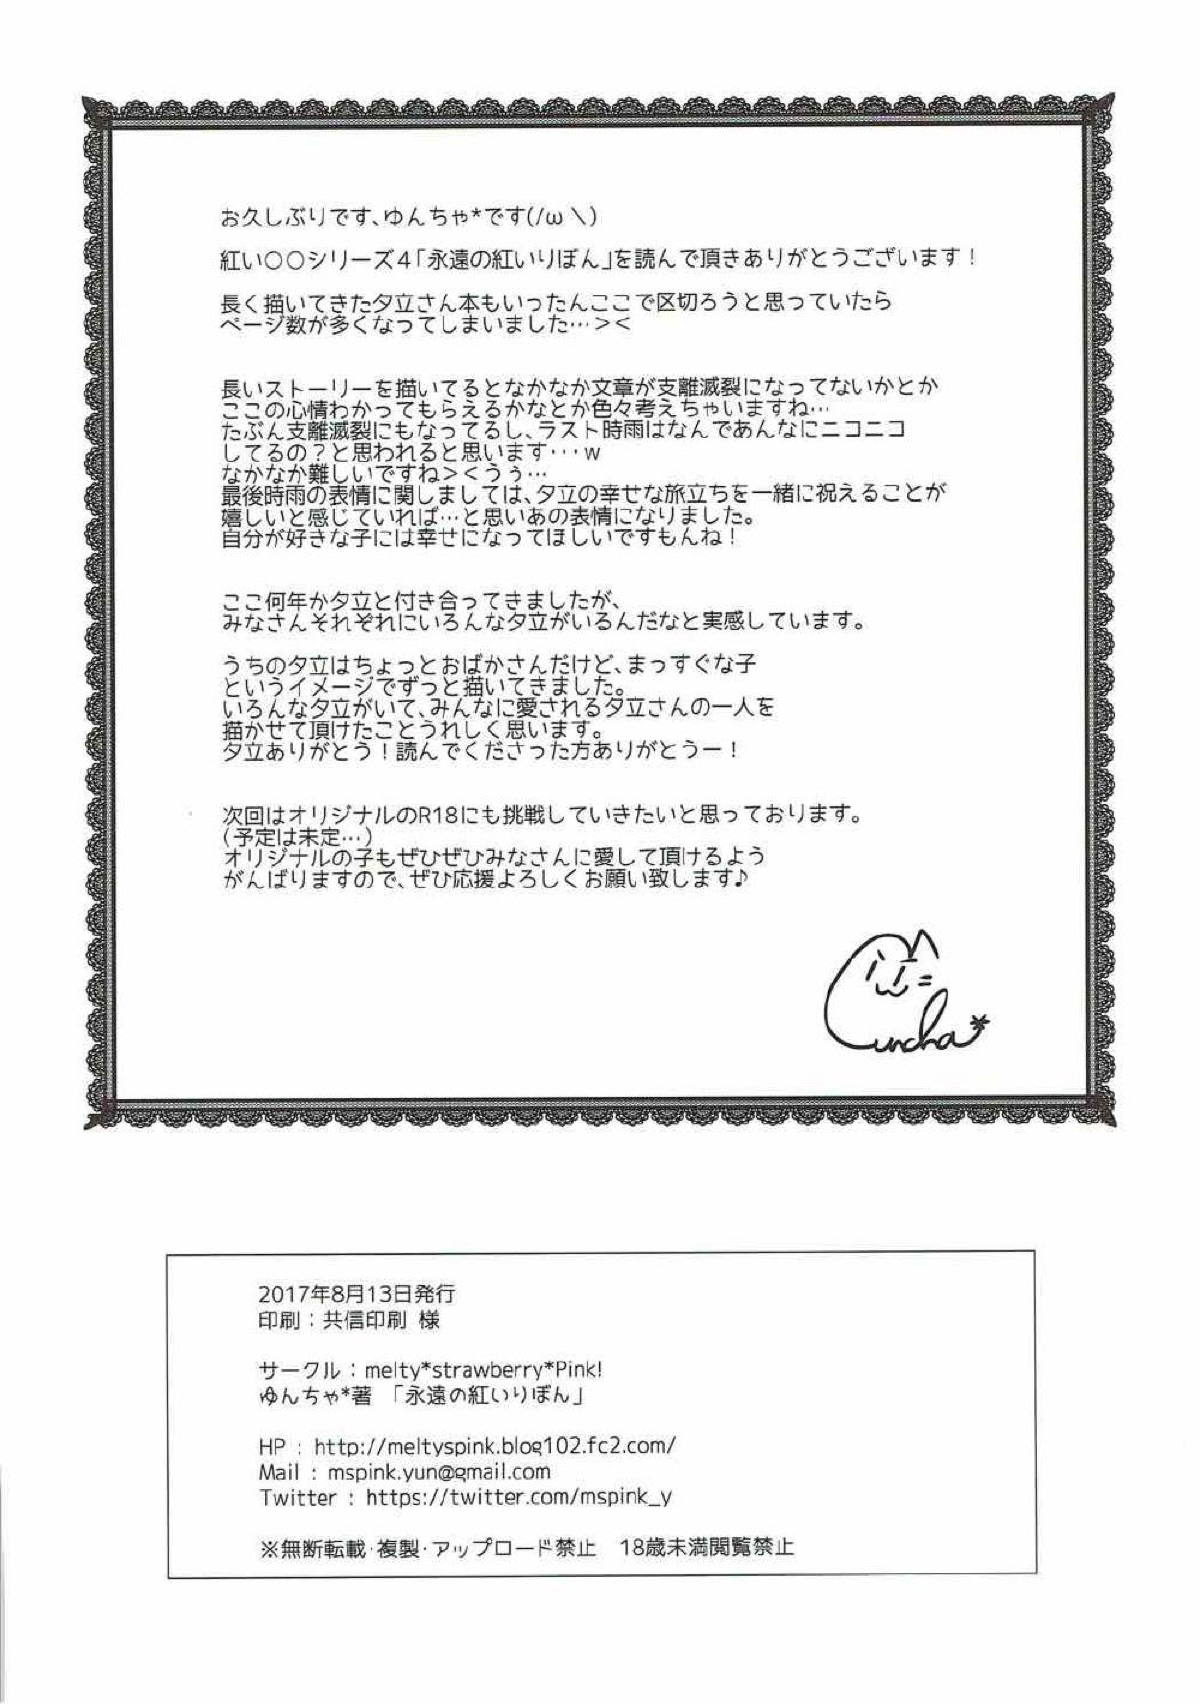 お久しぶりです、ゆんちゃ*です(/ω＼)
紅い○○シリーズ4「永遠の紅いりぼん」を読んで頂きありがとうございます！
長く描いてきた夕立さん本もいったんここで区切ろうと思っていたら
ページ数が多くなってしまいました…＞＜
長いストーリーを描いてるとなかなか文章が支離滅裂になってないかとか
ここの心情わかってもらえるかなとか色々考えちゃいますね…
たぶん支離滅裂にもなってるし、ラスト時雨はなんであんなにニコニコ
してるの？と思われると思います…w
なかなか難しいですね＞＜うぅ…
最後時雨の表情に関しましては、夕立の幸せな旅立ちを一緒に祝えることが
嬉しいと感じていれば…と思いあの表情になりました。
自分が好きな子には幸せになってほしいですもんね！
ここ何年か夕立と付き合ってきましたが、
みなさんそれぞれにいろんな夕立がいるんだなと実感しています。
うちの夕立はちょっとおばかさんだけど、まっすぐな子
というイメージでずっと描いてきました。
いろんな夕立がいて、みんなに愛される夕立さんの一人を
描かせて頂けたことうれしく思います。
夕立ありがとう！読んでくださった方ありがとうー！
次回はオリジナルのR18にも挑戦していきたいと思っております。
(予定は未定…)
オリジナルの子もぜひぜひみなさんに愛して頂けるよう
がんばりますので、ぜひ応援よろしくお願い致します♪
uncha*
2017年8月13日発行
印刷：共信印刷 様
サークル：melty*strawberry*Pink!
ゆんちゃ*著 「永遠の紅いりぼん」
HP : http://meltyspink.blog102.fc2.com/
Mail : mspink.yun@gmail.com
Twitter : https://twitter.com/mspink_y
※無断転載・複製・アップロード禁止　18歳未満閲覧禁止